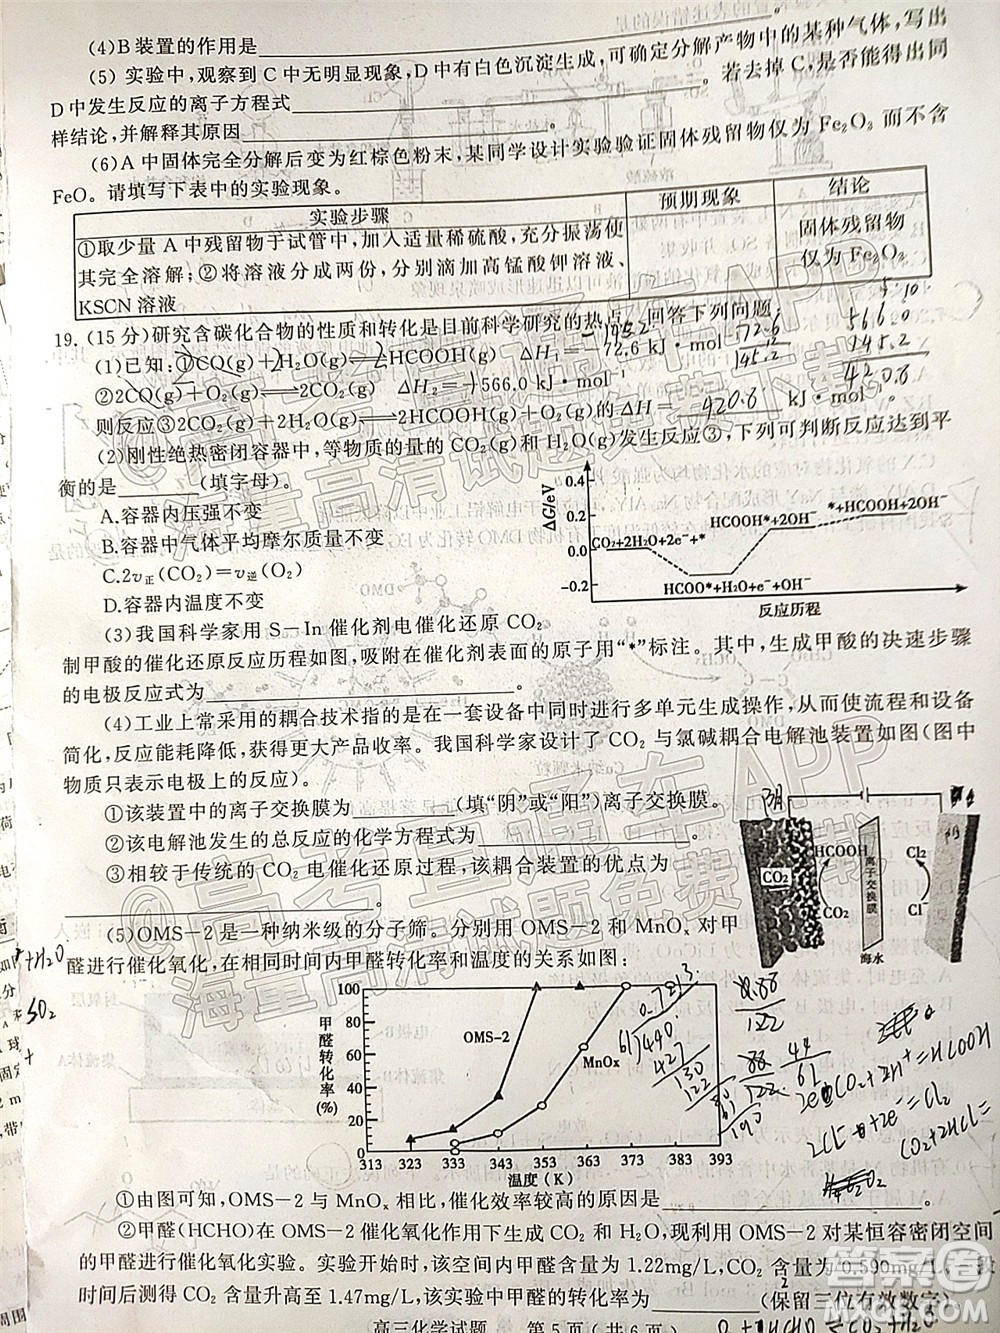 (4)B装置的作用是
(5)实验中,观察到C中无明显现象,D中有白色沉淀生成,可确定分解产物中的某种气体,写出
D中发生反应的离子方程式。若去掉C,是否能得出同
样结论,并解释其原因。
(6)A中固体完全分解后变为红棕色粉末,某同学设计实验验证固体残留物仅为Fe₂O₃而不含
FeO。请填写下表中的实验现象。
实验步骤 预期现象 结论
①取少量A中残留物于试管中,加入适量稀硫酸,充分振荡使
其完全溶解;②将溶液分成两份,分别滴加高锰酸钾溶液、
KSCN溶液
固体残留物
仅为Fe₂O₃
19.(15分)研究含碳化合物的性质和转化是目前科学研究的热点。回答下列问题
(1)已知:①CO₂(g)+H₂O(g)⇌HCOOH(g) ΔH₁=−72.6 kJ·mol
②2CO(g)+O₂(g)⇌2CO₂(g) ΔH₂=−566.0 kJ·mol⁻¹
则反应③2CO₂(g)+2H₂O(g)⇌2HCOOH(g)+O₂(g)的ΔH= 420.8 kJ·mol
(2)刚性绝热密闭容器中,等物质的量的CO₂(g)和H₂O(g)发生反应③,下列可判断反应达到平
衡的是(填字母)。
A.容器内压强不变
B.容器中气体平均摩尔质量不变
C.2v正(CO₂)=v逆(O₂)
D.容器内温度不变
ΔG/eV
0.4
0.2
0.0
−0.2
CO₂+2H₂O+2e⁻+*
HCOO*+H₂O+e⁻+OH⁻
HCOOH*+2OH⁻
*+HCOOH+2OH⁻
反应历程
(3)我国科学家用S−In催化剂电催化还原CO₂
制甲酸的催化还原反应历程如图,吸附在催化剂表面的原子用“*”标注。其中,生成甲酸的决速步骤
的电极反应式为。
(4)工业上常采用的耦合技术指的是在一套设备中同时进行多单元生成操作,从而使流程和设备
简化,反应能耗降低,获得更大产品收率。我国科学家设计了CO₂与氯碱耦合电解池装置如图(图中
物质只表示电极上的反应)。
①该装置中的离子交换膜为(填“阴”或“阳”)离子交换膜。
②该电解池发生的总反应的化学方程式为。
③相较于传统的CO₂电催化还原过程,该耦合装置的优点为
。
阴
CO₂
HCOOH
CO₂
离子交换膜
Cl₂
Cl⁻
海水
(5)OMS−2是一种纳米级的分子筛。分别用OMS−2和MnOₓ对甲
醛进行催化氧化,在相同时间内甲醛转化率和温度的关系如图:
甲醛转化率(%)
100
80
60
40
20
0
OMS-2
MnOx
313 323 333 343 353 363 373 383 393
温度(K)
①由图可知,OMS−2与MnOₓ相比,催化效率较高的原因是。
②甲醛(HCHO)在OMS−2催化氧化作用下生成CO₂和H₂O,现利用OMS−2对某恒容密闭空间
的甲醛进行催化氧化实验。实验开始时,该空间内甲醛含量为1.22mg/L,CO₂含量为0.590mg/L,一段
时间后测得CO₂含量升高至1.47mg/L,该实验中甲醛的转化率为(保留三位有效数字)
高三化学试题 第5页(共6页)